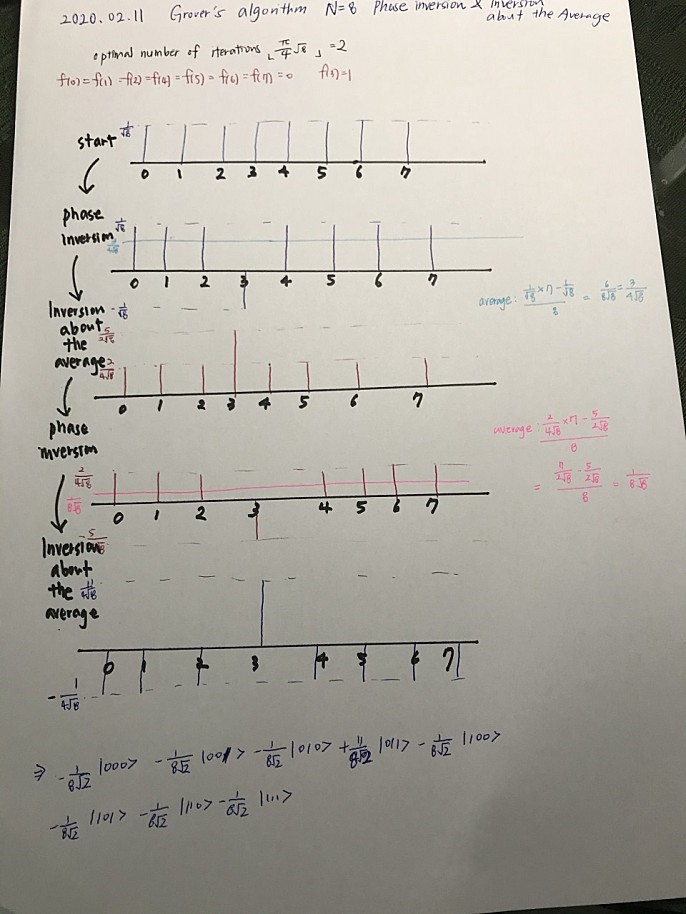 2020.02.11 Grover's algorithm N=8 Phase inversion & Inversion about the Average
optimal number of iterations ⌊π/4 √8⌋ = 2
f(0)=f(1)=f(2)=f(4)=f(5)=f(6)=f(7)=0 f(3)=1
start 1/√8
0 1 2 3 4 5 6 7
phase inversion 1/√8
0 1 2 3 4 5 6 7
-1/√8
average: (1/√8 ×7 - 1/√8)/8 = 6/8√8 = 3/4√8
Inversion about the average 5/2√8
2/4√8
0 1 2 3 4 5 6 7
phase inversion
average: (2/4√8 ×7 - 5/2√8)/8
= (7/2√8 - 5/2√8)/8 = 1/8√8
2/4√8
1/8√8
0 1 2 3 4 5 6 7
-5/2√8
Inversion about the average 11/4√8
0 1 2 3 4 5 6 7
-1/4√8
⇒ -1/8√2 |000> -1/8√2 |001> -1/8√2 |010> +11/8√2 |011> -1/8√2 |100>
-1/8√2 |101> -1/8√2 |110> -1/8√2 |111>